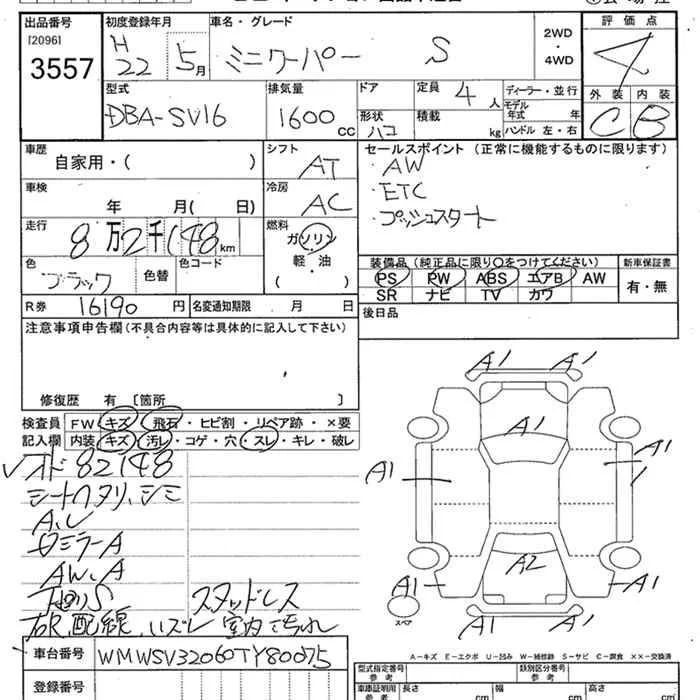 出品番号 初度登録年月 車名・グレード 2WD・4WD 評価点
[2096]
3557 H22 5月 ミニクーパー S 4
型式 排気量 ドア 定員 ディーラー・並行 外装 内装
DBA-SV16 1600cc 4人 モデル年式 年
形状 ハコ 積載 kg ハンドル 左・右 C B
車歴 シフト セールスポイント (正常に機能するものに限ります)
自家用・( ) AT ・AW
車検 冷房 ・ETC
年 月( 日) AC ・プッシュスタート
走行 8万2千148km 燃料 ガソリン
軽・油
( )
色 ブラック 色替 色コード
装備品 (純正品に限り○をつけてください) 新車保証書
PS PW ABS エアB AW 有・無
SR ナビ TV カワ
R券 16190円 名変通知期限 月 日 後日品
注意事項申告欄 (不具合内容等は具体的に記入して下さい)
修復歴 有 〔箇所 〕
検査員 FW キズ・飛石・ヒビ割・リペア跡・×要
記入欄 内装 キズ・汚レ・コゲ・穴・スレ・キレ・破レ
オド82148
シートヘタリ、シミ
A、レ
ミラーA
AW、A
S スタッドレス
配線、ハズレ 室内
A1 A1
A1
A1 A1
A2
A1 A1
A1 A1
スペア
A-キズ E-エクボ U-凹み W-補修跡 S-サビ C-腐食 ××-交換済
車台番号 WMWSV32060TY80075
登録番号
型式指定番号 類別区分番号
参考
車庫証明用 長さ 幅 高さ
参考 cm cm cm